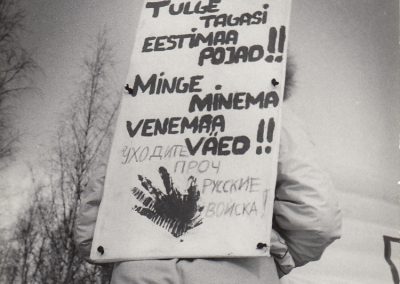 TULGE
TAGASI
EESTIMAA
POJAD!!
MINGE
MINEMA
VENEMAA
VÄED!!
УХОДИТЕ
ПРОЧ
РУССКИЕ
ВОЙСКА!